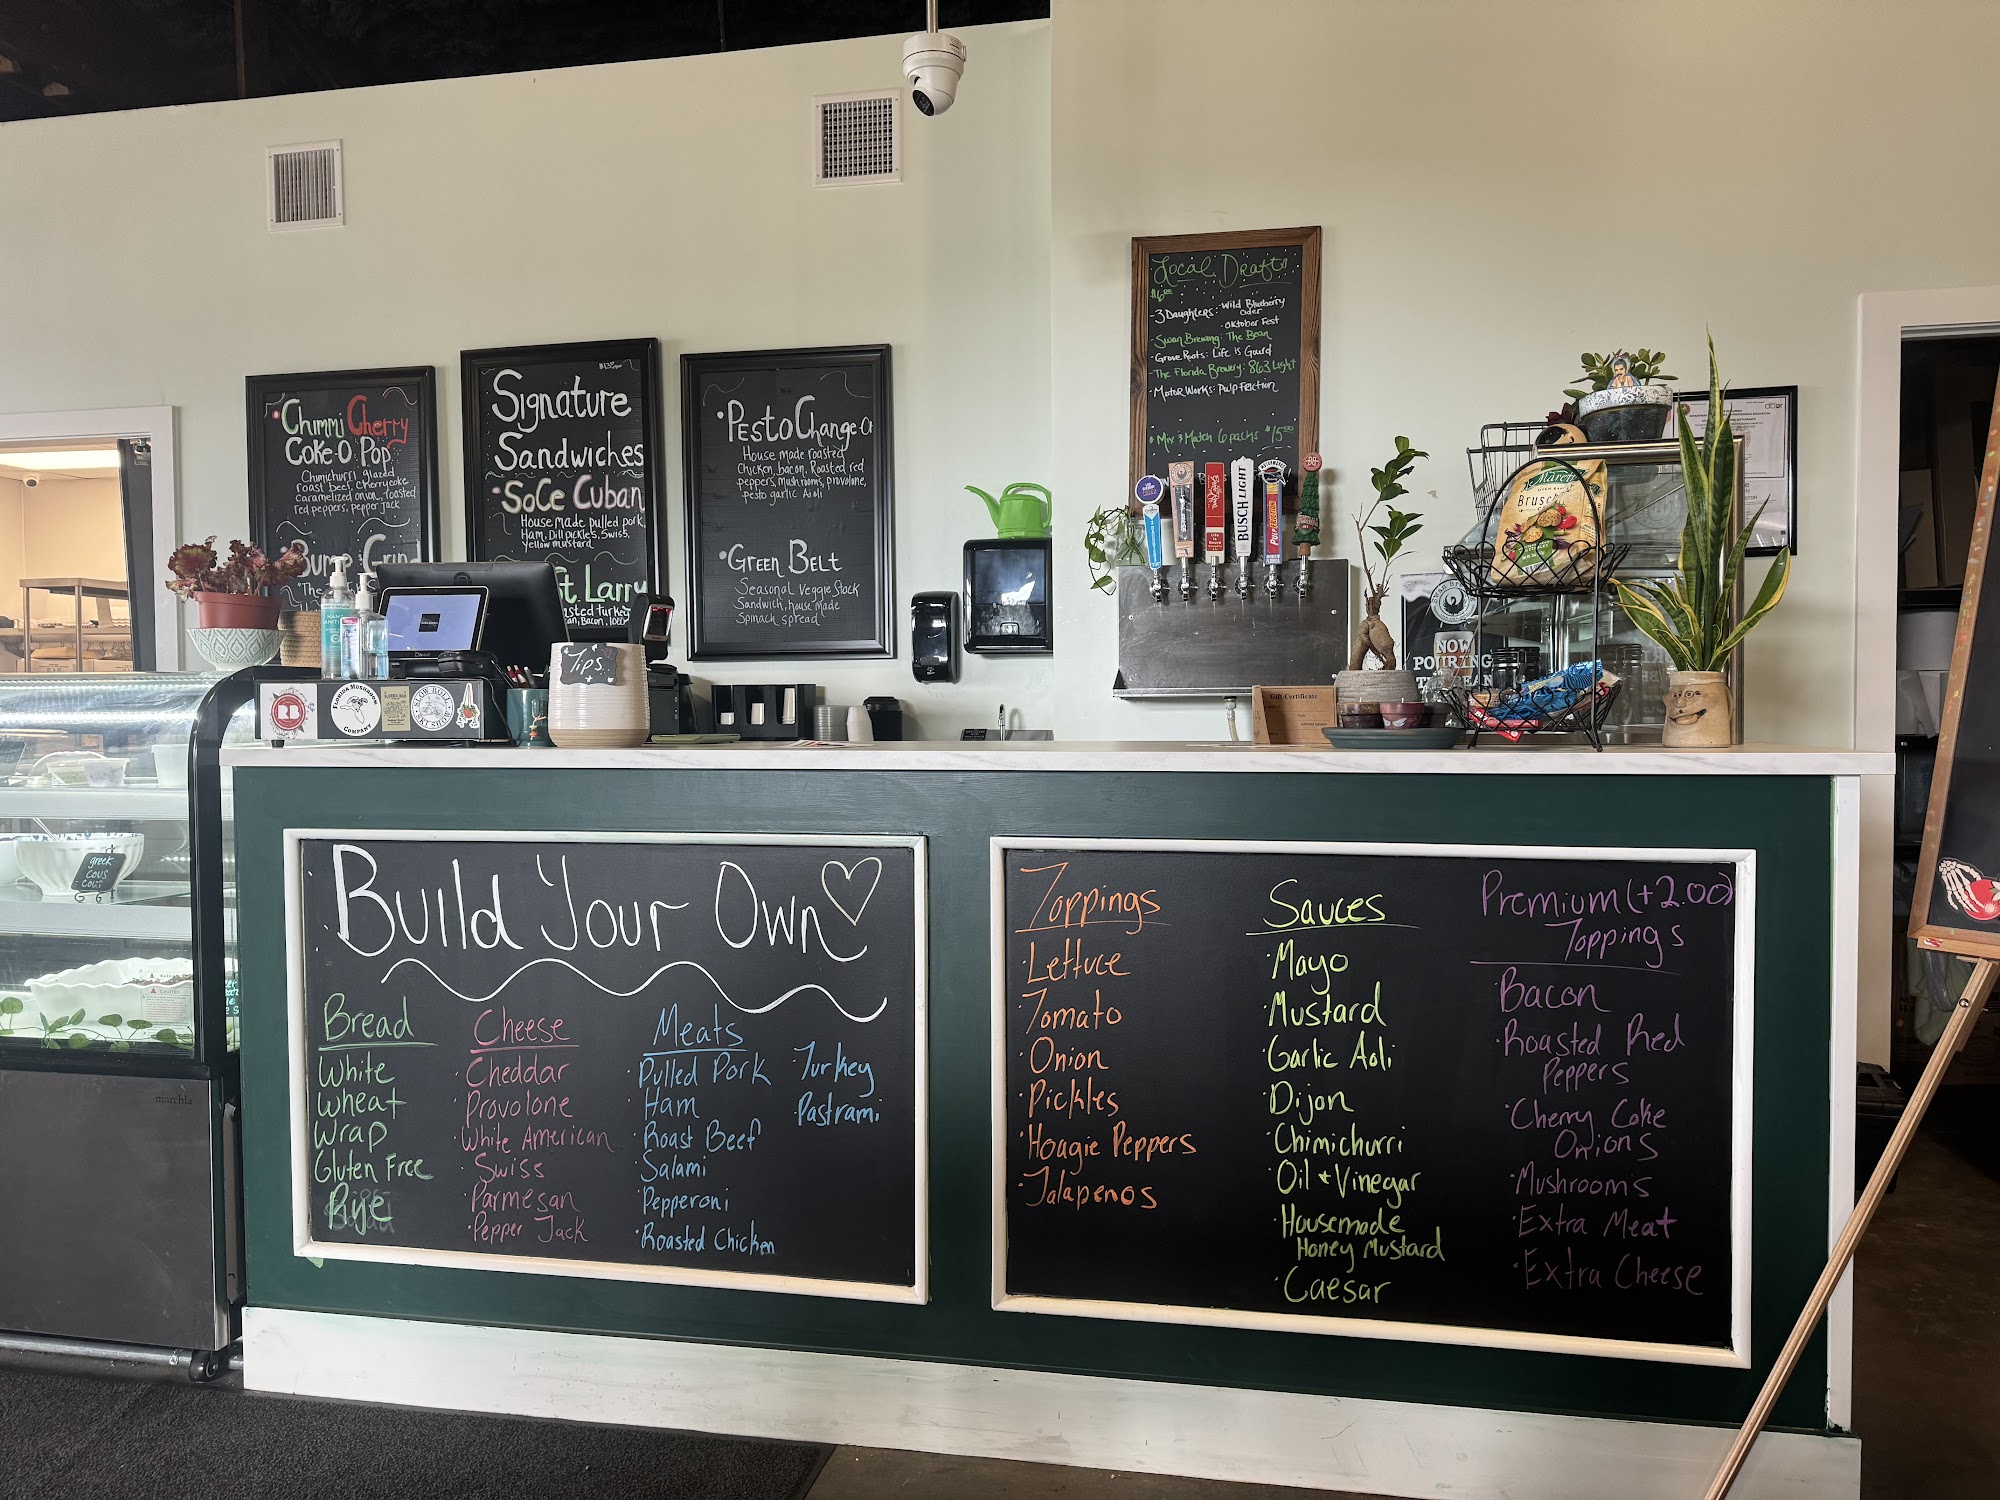 Chimmi Cherry
Coke-O Pop
Chimichurri glazed
roast beef, Cherrycoke
Caramelized onion, roasted
red peppers, pepper jack
Bump Grind
Signature
Sandwiches
SoCe Cuban
House made pulled pork,
Ham, Dill pickles, Swiss,
yellow mustard
St. Larry
Bacon,
Pesto Change-O
House made roasted
Chicken, bacon, Roasted red
peppers, mushrooms, provolone,
pesto garlic Aioli
Green Belt
Seasonal Veggie Stack
Sandwich, house made
Spinach spread
Local Drafts
$6.00
-3 Daughters: Wild Blueberry
Cider
- Oktober Fest
-Swan Brewing: The Bean
-Grove Roots: Life is Gourd
-The Florida Brewery: 863 Light
-MotorWorks: Pulp Friction
Mix & Match 6 packs $15.00
BUSCH LIGHT
NOW
POURING
Gift Certificate
Tips
RB
FLORIDA MUSHROOM
COMPANY
SLOW ROLL
SKI SHOP
greek
cous
cous
Caution
marchia
Build Your Own
Bread
White
Wheat
Wrap
Gluten Free
Rye
Cheese
· Cheddar
· Provolone
· White American
· Swiss
· Parmesan
· Pepper Jack
Meats
· Pulled Pork
· Ham
· Roast Beef
· Salami
· Pepperoni
· Roasted Chicken
· Turkey
· Pastrami
Toppings
· Lettuce
· Tomato
· Onion
· Pickles
· Hoagie Peppers
· Jalapenos
Sauces
· Mayo
· Mustard
· Garlic Aoli
· Dijon
· Chimichurri
· Oil + Vinegar
· Housemade
Honey Mustard
· Caesar
Premium (+2.00)
Toppings
· Bacon
· Roasted Red
Peppers
· Cherry Coke
Onions
· Mushrooms
· Extra Meat
· Extra Cheese